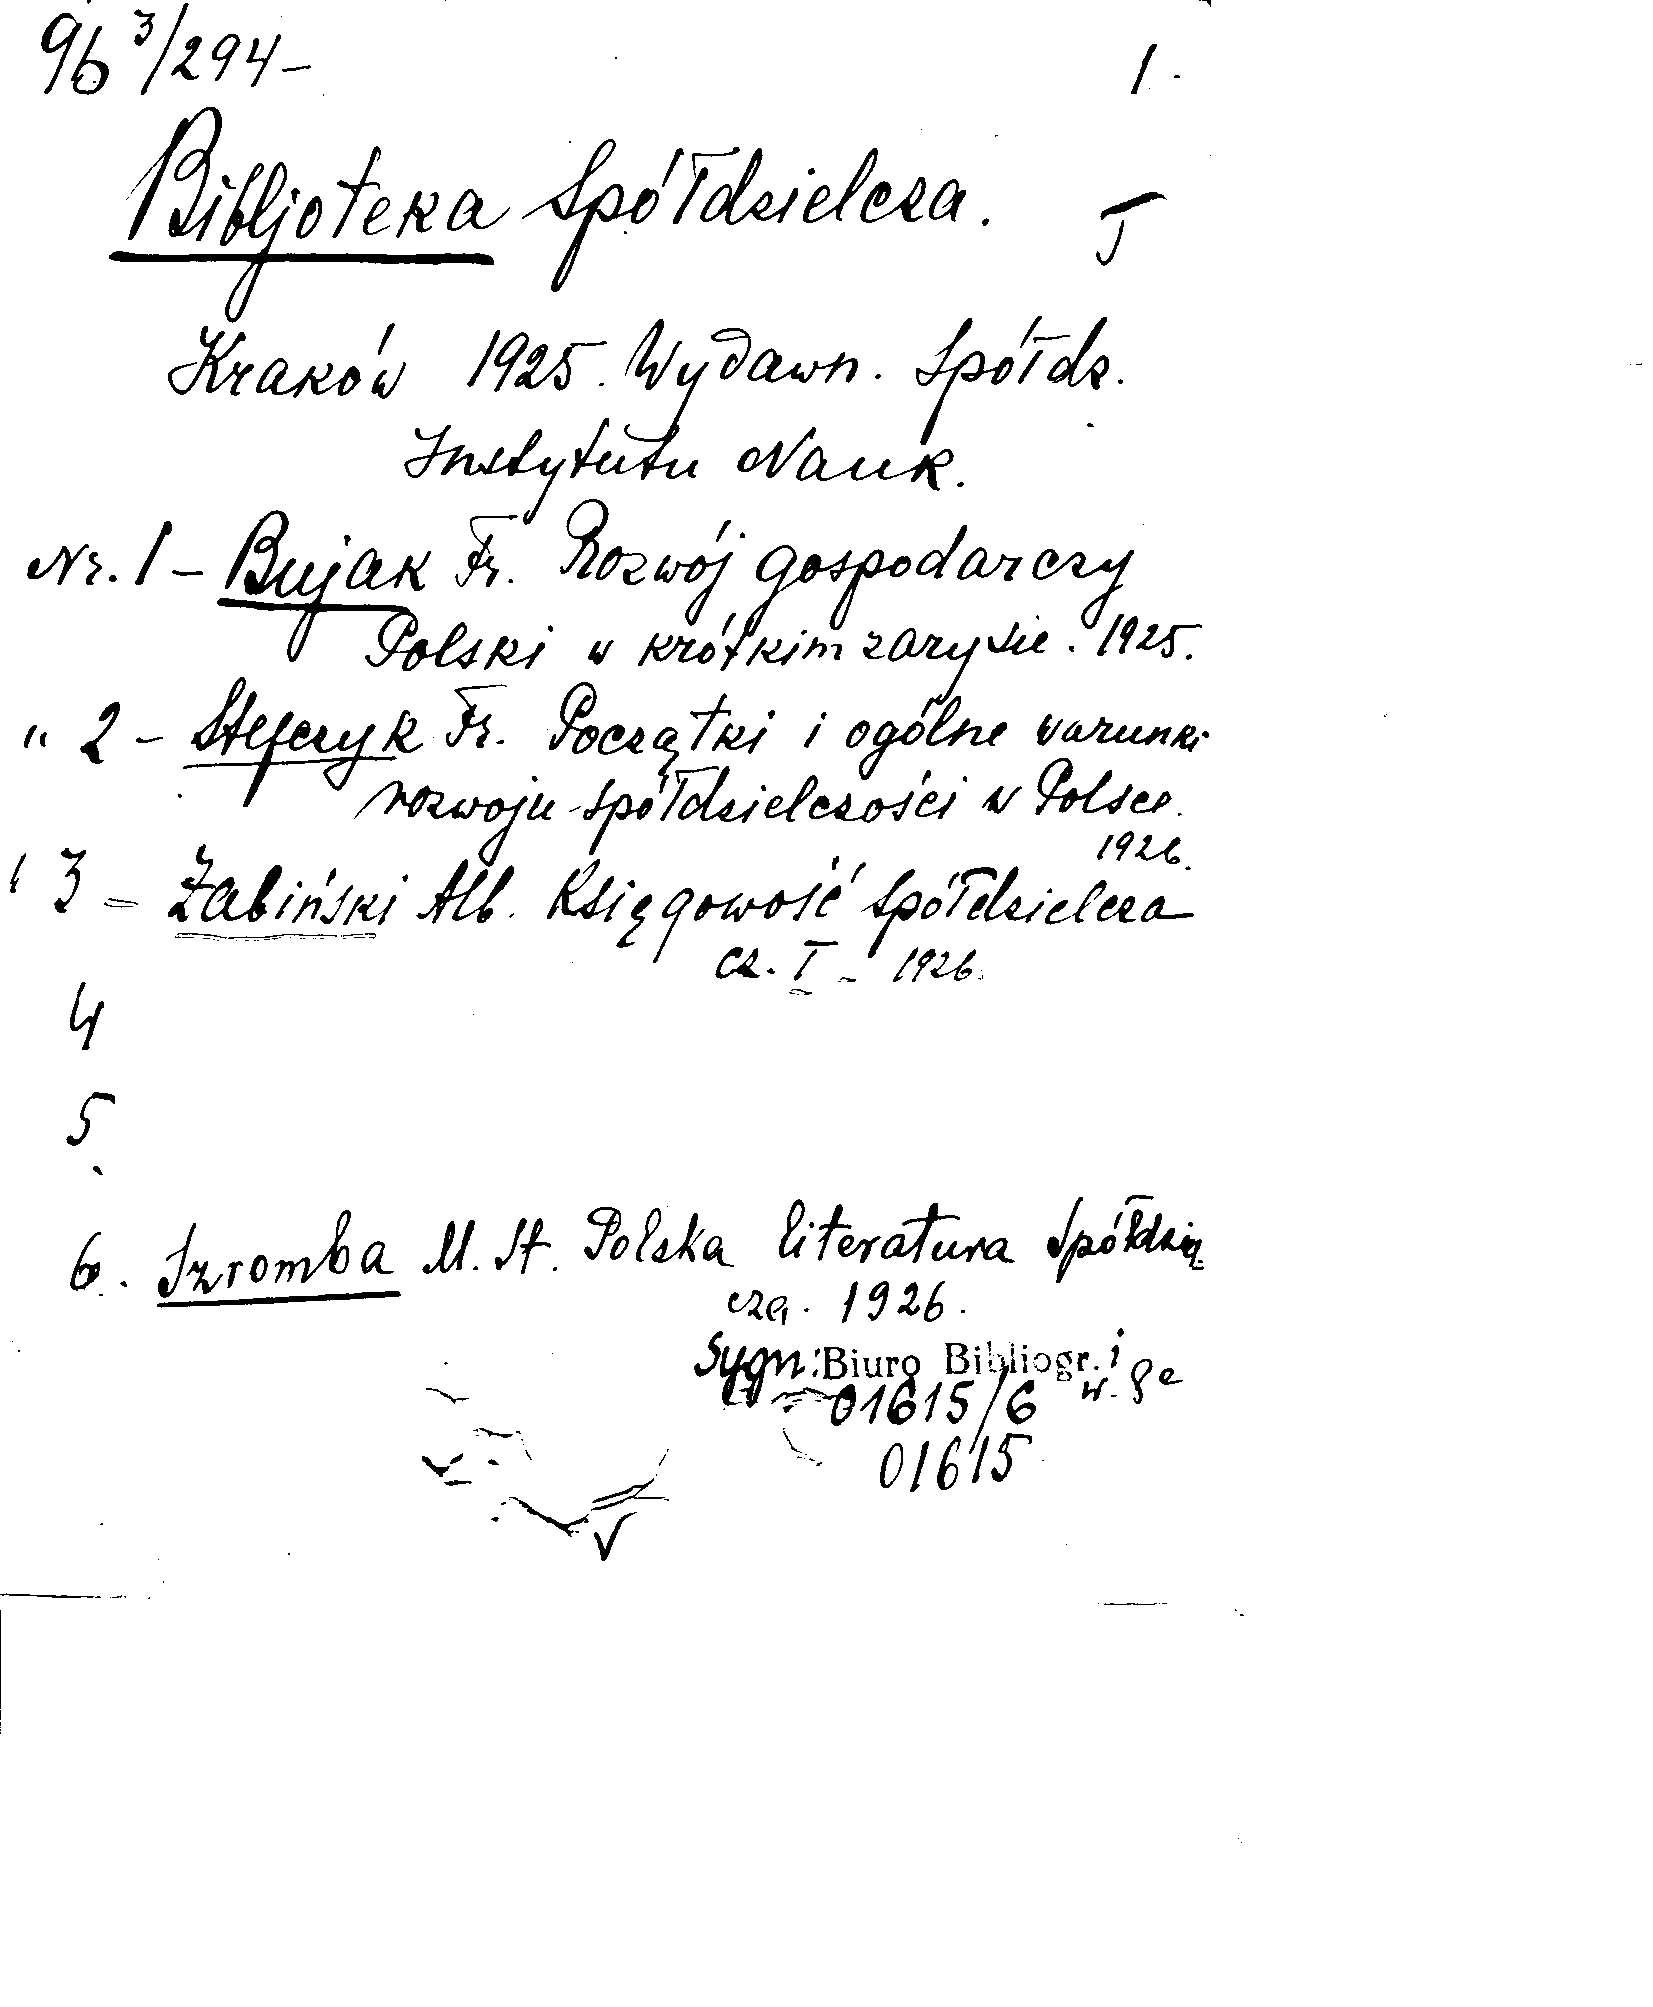 96 3/294 – 1.
Bibljoteka Spółdzielcza. I
Kraków 1925. Wydawn. Spółdz.
Instytutu Nauk.
Nr. 1 – Bujak Fr. Rozwój gospodarczy
Polski w krótkim zarysie. 1925.
" 2 – Stefczyk Fr. Początki i ogólne warunki
rozwoju spółdzielczości w Polsce.
1926.
" 3 – Żabiński Alb. Księgowość spółdzielcza
cz. I – 1926.
4
5
6. Szromba M. St. Polska literatura Spółdziel
cza. 1926.
Sygn: Biuro Bibliogr. i
01615/6
01615